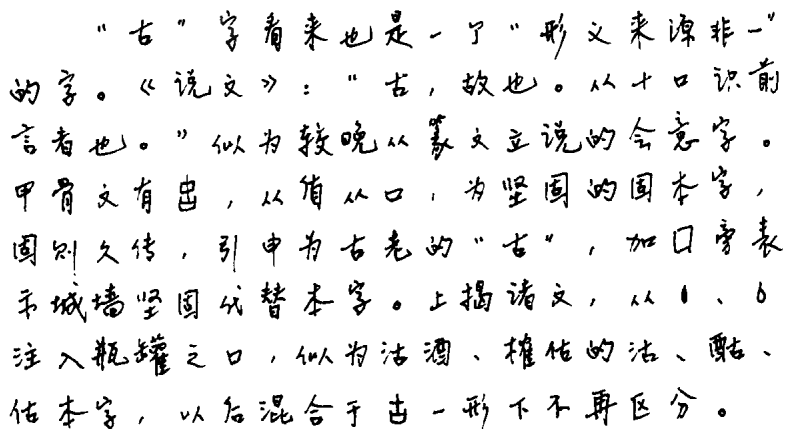 “古”字看来也是一个“形义来源非一”
的字。《说文》：“古，故也。从十口识前
言者也。”似为较晚从篆文立说的会意字。
甲骨文有，从盾从口，为坚固的固本字，
固则久传，引申为古老的“古”，加囗旁表
示城墙坚固代替本字。上揭诸文，从、
注入瓶罐之口，似为沽酒、榷估的沽、酤、
估本字，以后混合于古一形下不再区分。